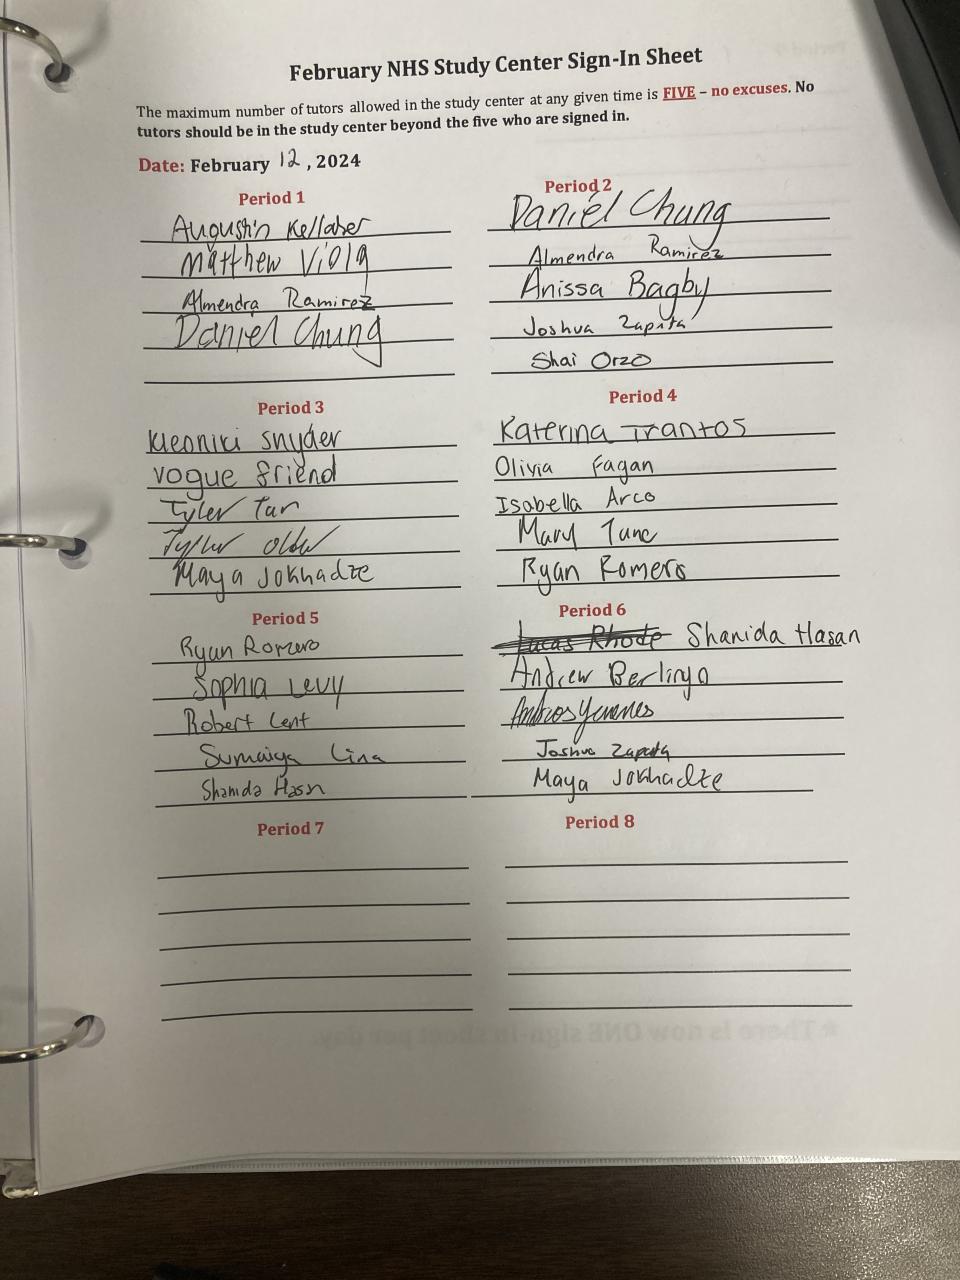 February NHS Study Center Sign-In Sheet
The maximum number of tutors allowed in the study center at any given time is FIVE – no excuses. No
tutors should be in the study center beyond the five who are signed in.
Date: February 12, 2024
Period 1
Augustin Kellaher
Matthew Viola
Almendra Ramirez
Daniel Chung
Period 2
Daniel Chung
Almendra Ramirez
Anissa Bagby
Joshua Zapata
Shai Orzo
Period 3
Kleoniki Snyder
Vogue Friend
Tyler Tan
Tyler
Maya Jokhadze
Period 4
Katerina Trantos
Olivia Fagan
Isabella Arco
Mary
Ryan Romero
Period 5
Ryan Romero
Sophia Levy
Robert Lent
Sumaiya Lina
Shanida Hasn
Period 6
Lucas Rhode Shanida Hasan
Andrew Berlingo
Joshua Zapata
Maya Jokhadze
Period 7
Period 8